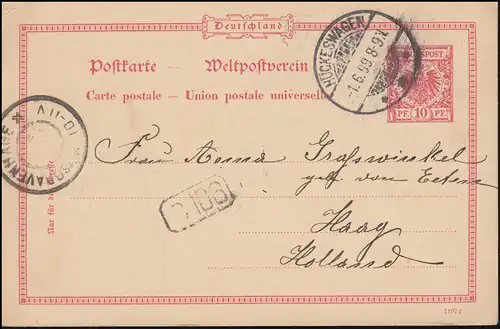 Deutschland
Postkarte – Weltpostverein
Carte postale – Union postale universelle
HÜCKESWAGEN
-1.6.99.8-9V.
REICHSPOST
10 PF. 10 PF.
'SGRAVENHAGE
10-11 V
Frau Anna Grafswinkel
geb. von Eeten
Haag
Holland
D106
Nur für die Adresse